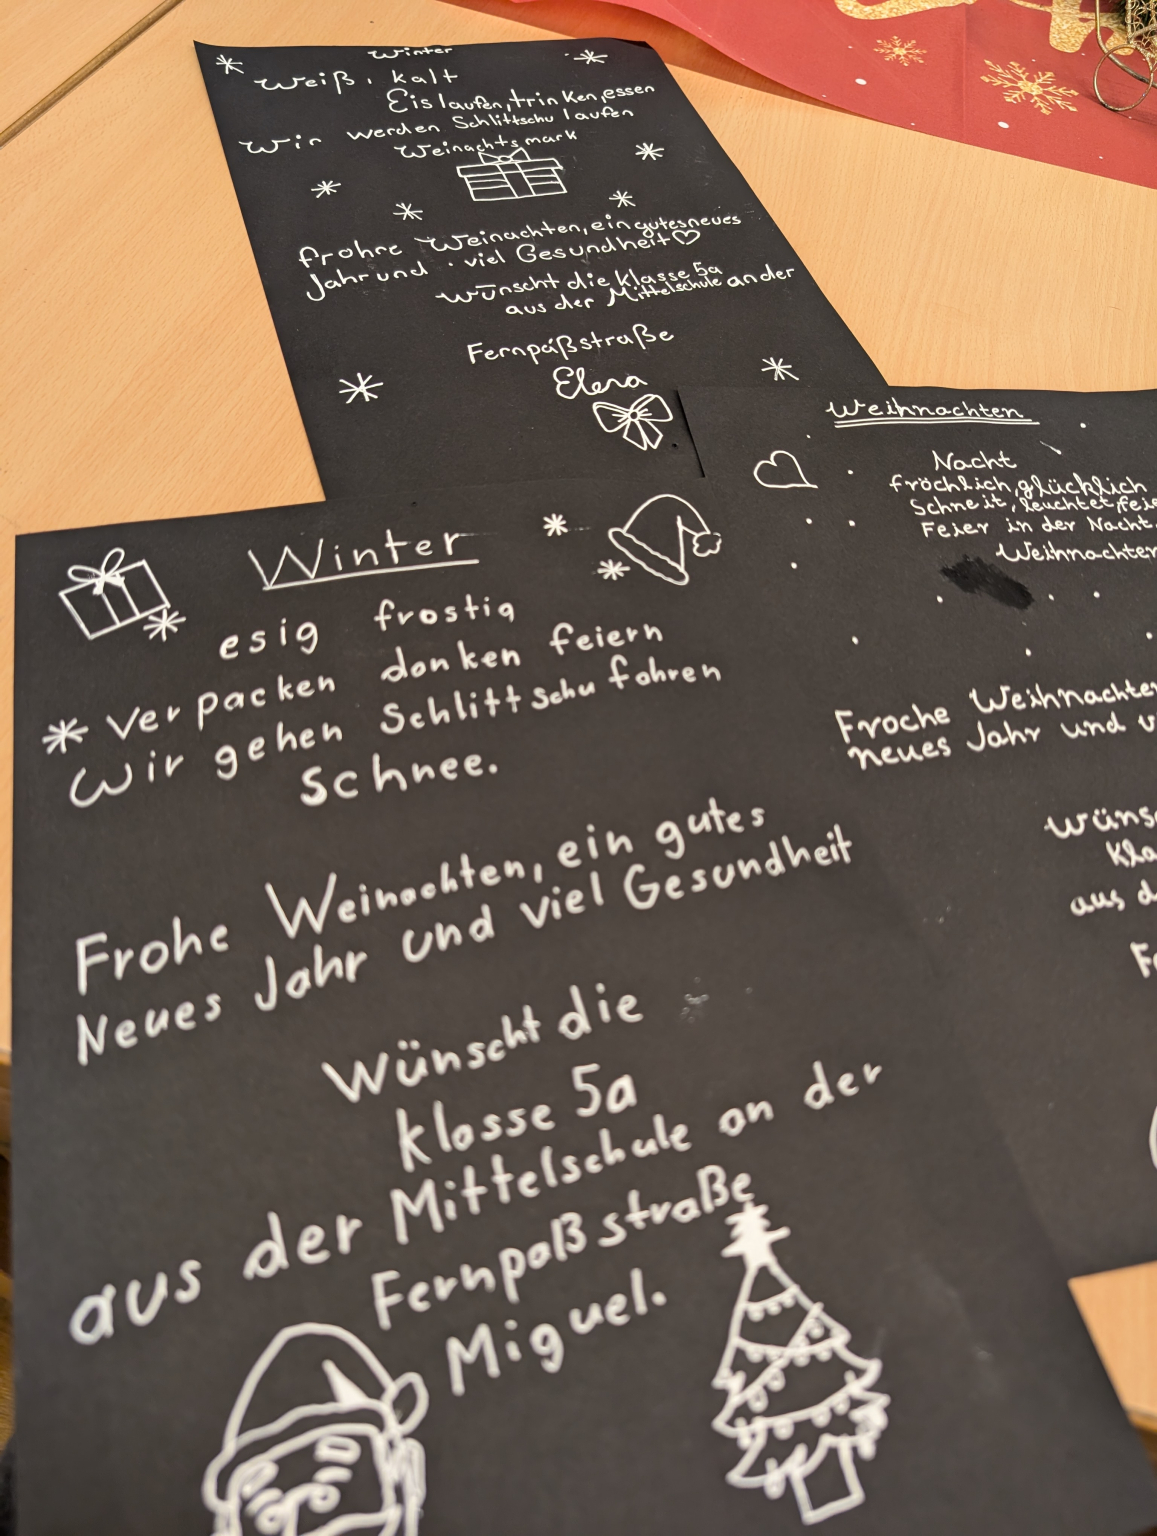 Winter
Weiß, kalt
Eislaufen, trinken, essen
Wir werden Schlittschu laufen
Weinachtsmark
frohre Weinachten, ein gutes neues
Jahr und viel Gesundheit
wünscht die Klasse 5a
aus der Mittelschule an der
Fernpaßstraße
Elena
Weihnachten
Nacht
fröchlich, glücklich
Schneit, leuchtet, feie
Feier in der Nacht.
Weihnachten
Froche Weihnachten
neues Jahr und v
wünsc
Kla
aus d
Fe
Winter
esig frostig
verpacken danken feiern
Wir gehen Schlittschu fahren
Schnee.
Frohe Weinachten, ein gutes
Neues Jahr und viel Gesundheit
Wünscht die
klasse 5a
aus der Mittelschule an der
Fernpaßstraße
Miguel.